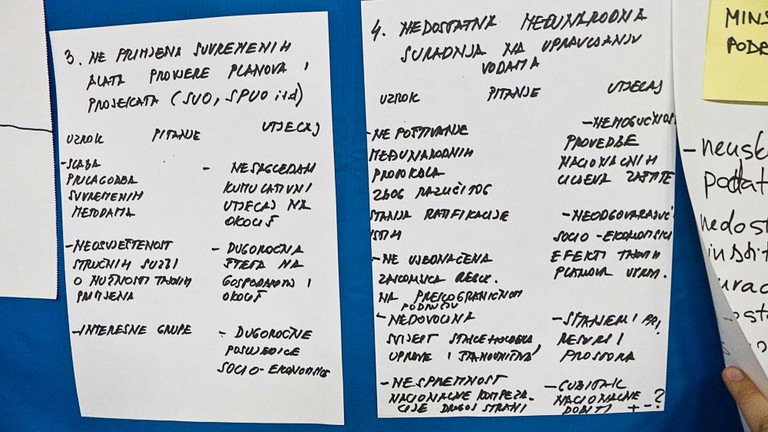 3. NE PRIMJENA SUVREMENIH
ALATA PROVJERE PLANOVA I
PROJEKATA (SUO, SPUO itd)
UZROK PITANJE UTJECAJ
- SLABA
PRILAGODBA
SUVREMENIM
METODAMA
- NEOSVJEŠTENOST
STRUČNIH SUŽBI
O NUŽNOSTI
PRIMJENA
- INTERESNE GRUPE
- NESAGLEDANI
KUMULATIVNI
UTJECAJ NA
OKOLIŠ
- DUGOROČNA
ŠTETA NA
GOSPODARSTVO I
OKOLIŠ
- DUGOROČNE
POSLJEDICE
SOCIO-EKONOMSKE
4. NEDOSTATNA MEĐUNARODNA
SURADNJA NA UPRAVLJANJU
VODAMA
UZROK PITANJE UTJECAJ
- NE POŠTIVANJE
MEĐUNARODNIH
PROTOKOLA
ZBOG RAZLIČITOG
STANJA RATIFIKACIJE
ISTIH
- NE UJEDNAČENA
ZAKONSKA REGUL.
NA PREKOGRANIČNOM
PODRUČJU
- NEDOVOLJNA
SVIJEST STAKEHOLDERA,
UPRAVE I STANOVNIŠTVA
- NESPREMNOST
NACIONALNE KOMPENZA-
CIJE DRUGOJ STRANI
- NEMOGUĆNOST
PROVEDBE
NACIONALNIH
CILJEVA ZAŠTITE
- NEODGOVARAJUĆI
SOCIO-EKONOMSKI
EFEKTI
PLANOVA UPRAV.
- STANJE
RESURSI
PROSTORA
- GUBITAK
NACIONALNE
DOBITI + - ?
MINS
PODR
- neusk
podat
nedost
instit